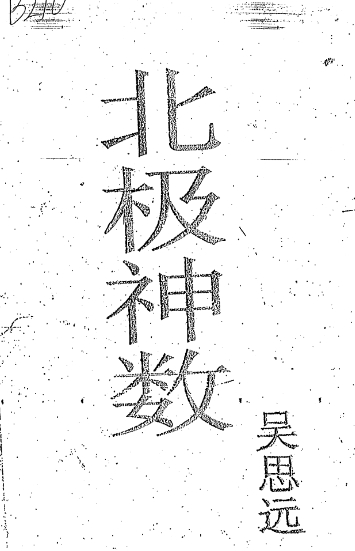 北极神数
吴思远